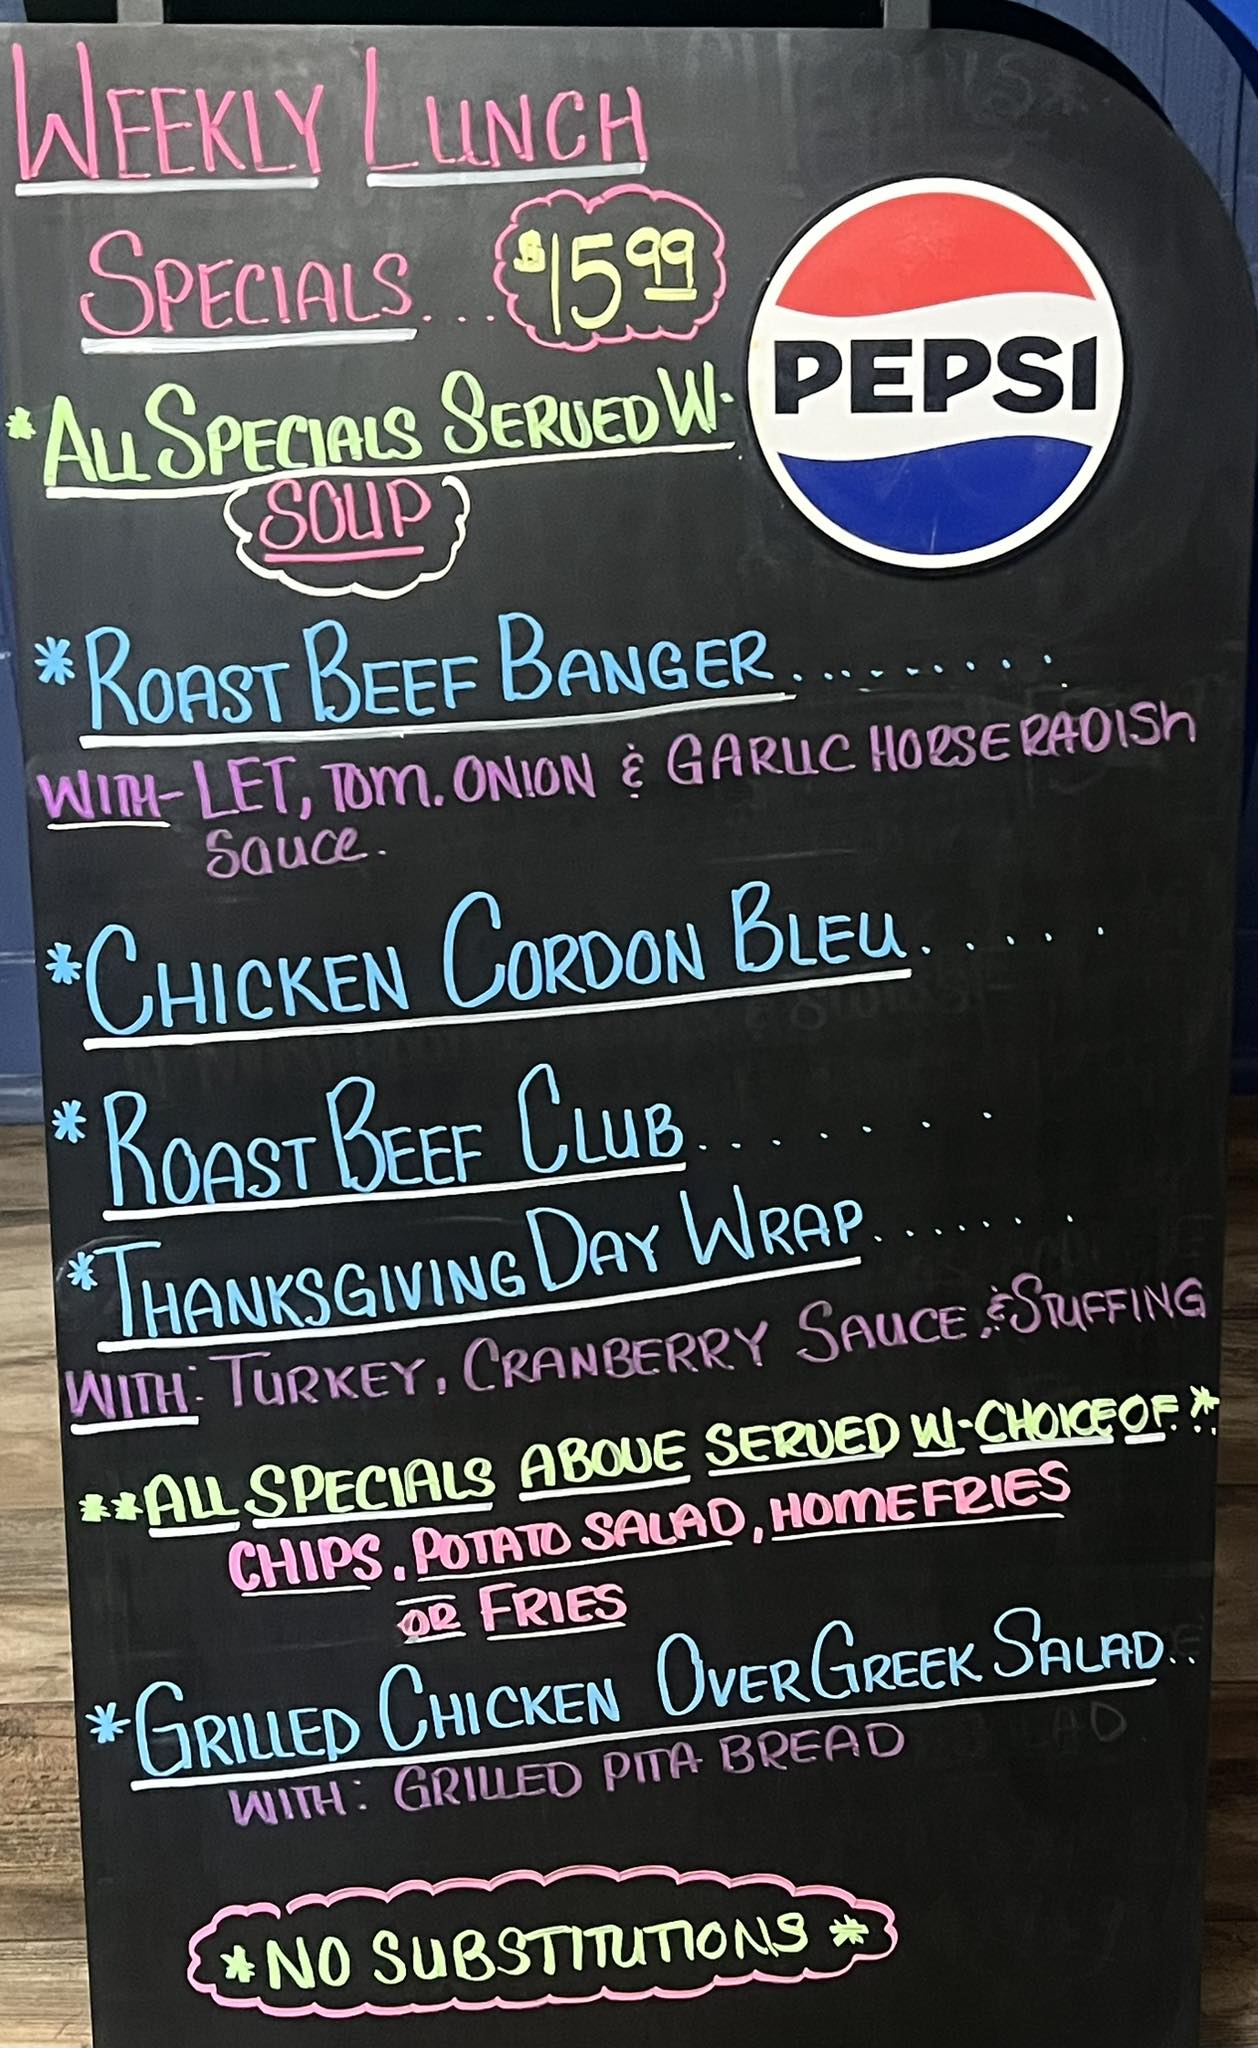 WEEKLY LUNCH
SPECIALS... $15.99
*ALL SPECIALS SERVED W-
SOUP
PEPSI
*ROAST BEEF BANGER..........
WITH- LET, TOM. ONION & GARLIC HORSERADISH
SAUCE.
*CHICKEN CORDON BLEU.....
*ROAST BEEF CLUB.......
*THANKSGIVING DAY WRAP......
WITH: TURKEY, CRANBERRY SAUCE & STUFFING
**ALL SPECIALS ABOVE SERVED W-CHOICE OF:*
CHIPS, POTATO SALAD, HOMEFRIES
OR FRIES
*GRILLED CHICKEN OVER GREEK SALAD..
WITH: GRILLED PITA BREAD
*NO SUBSTITUTIONS*